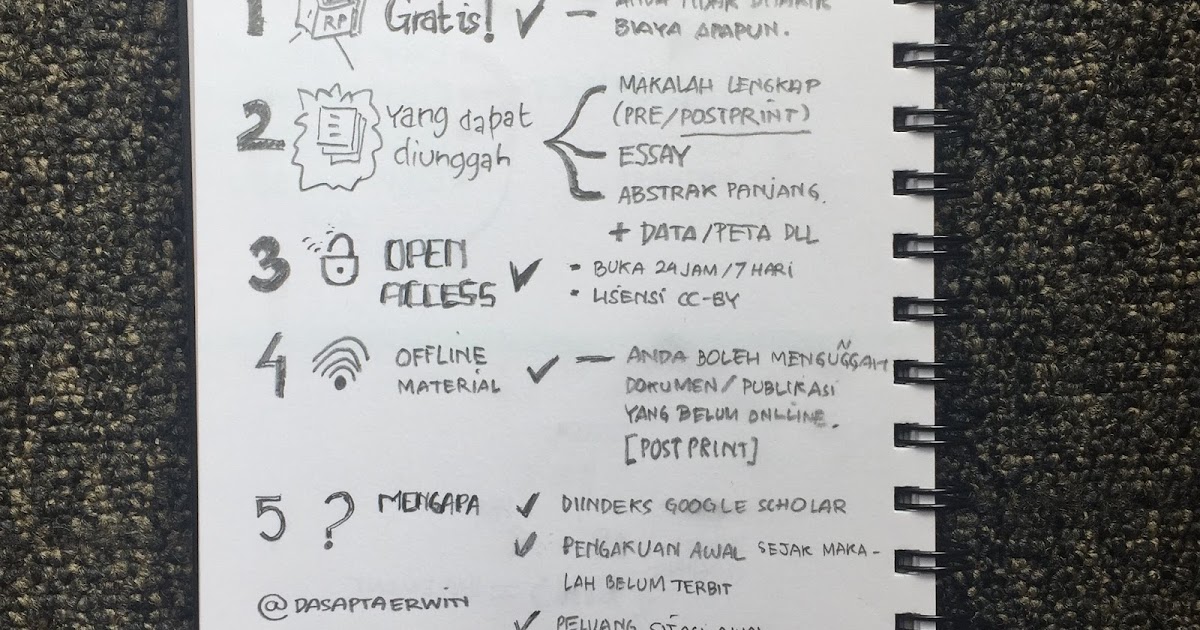 1 RP Gratis! ✓ –
BIAYA APAPUN.
2 Yang dapat
diunggah
MAKALAH LENGKAP
(PRE/POSTPRINT)
ESSAY
ABSTRAK PANJANG.
+ DATA/PETA DLL
3 OPEN
ACCESS ✓
- BUKA 24 JAM/7 HARI
• LISENSI CC-BY
4 OFFLINE
MATERIAL ✓ –
ANDA BOLEH MENGUGGAH
N
DOKUMEN/PUBLIKASI
YANG BELUM ONLLINE.
[POSTPRINT]
5 ? MENGAPA
✓ DIINDEKS GOOGLE SCHOLAR
✓ PENGAKUAN AWAL SEJAK MAKA-
LAH BELUM TERBIT
@DASAPTAERWIN
✓ PELUANG SITASI AWAL